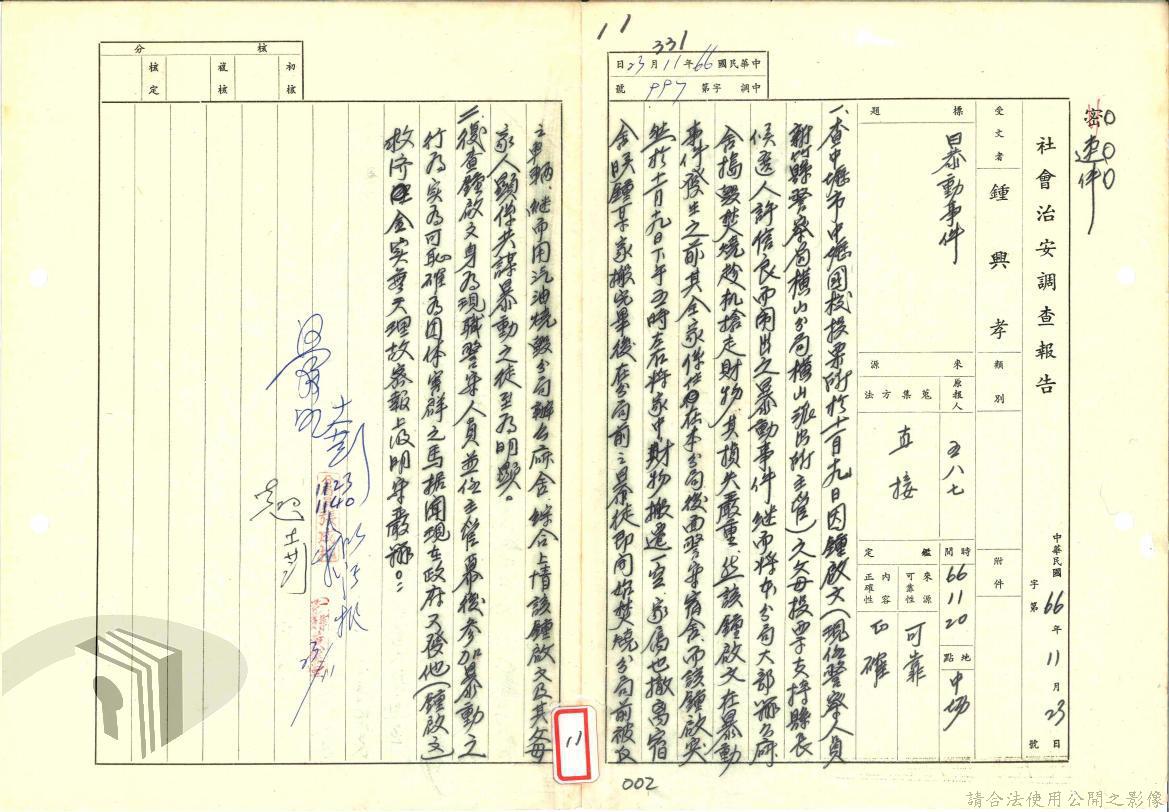 11
331
中華民國66年11月23日
中調字第997號
密
速件
社會治安調查報告
中華民國66年11月23日
字第 號
受文者 鍾興孝
類別
附件
標題 暴動事件
來源
原報人 五八七
蒐集方法 直接
時間 66 11 20
地點 中坜
鑑定
來源可靠性 可靠
內容正確性 正確
一、查中壢市中壢國校投票所於十一月十九日因鍾啟文(現任警察人員
新竹縣警察局橫山分局橫山派出所主管)之父母投票支持縣長
候選人許信良而鬧出之暴動事件繼而將本分局大部辦公廳
舍搗毀焚燒趁机搶走財物其損失嚴重然該鍾啟文在暴動
事件發生之前其全家係住在本分局後面警察宿舍而該鍾啟文
然於十一月十九日下午五時左右將家中財物搬遷一空家屬也撤离宿
舍時鍾某家搬完畢後在分局前之暴徒即開始焚燒分局前被
之車輛繼而用汽油燒毀分局辦公廳舍綜合上情該鍾啟文及其父母
家人顯係共謀暴動之徒至為明顯。
二、後查鍾啟文身為現職警察人員並任主管幕後參加暴動之
行為實為可恥確為团体害群之馬据聞現在政府又發他(鍾啟文)
救济金实無天理故密報上級明察嚴辦。
初核
覆核
核定
核分
11
002
請合法使用公開之影像